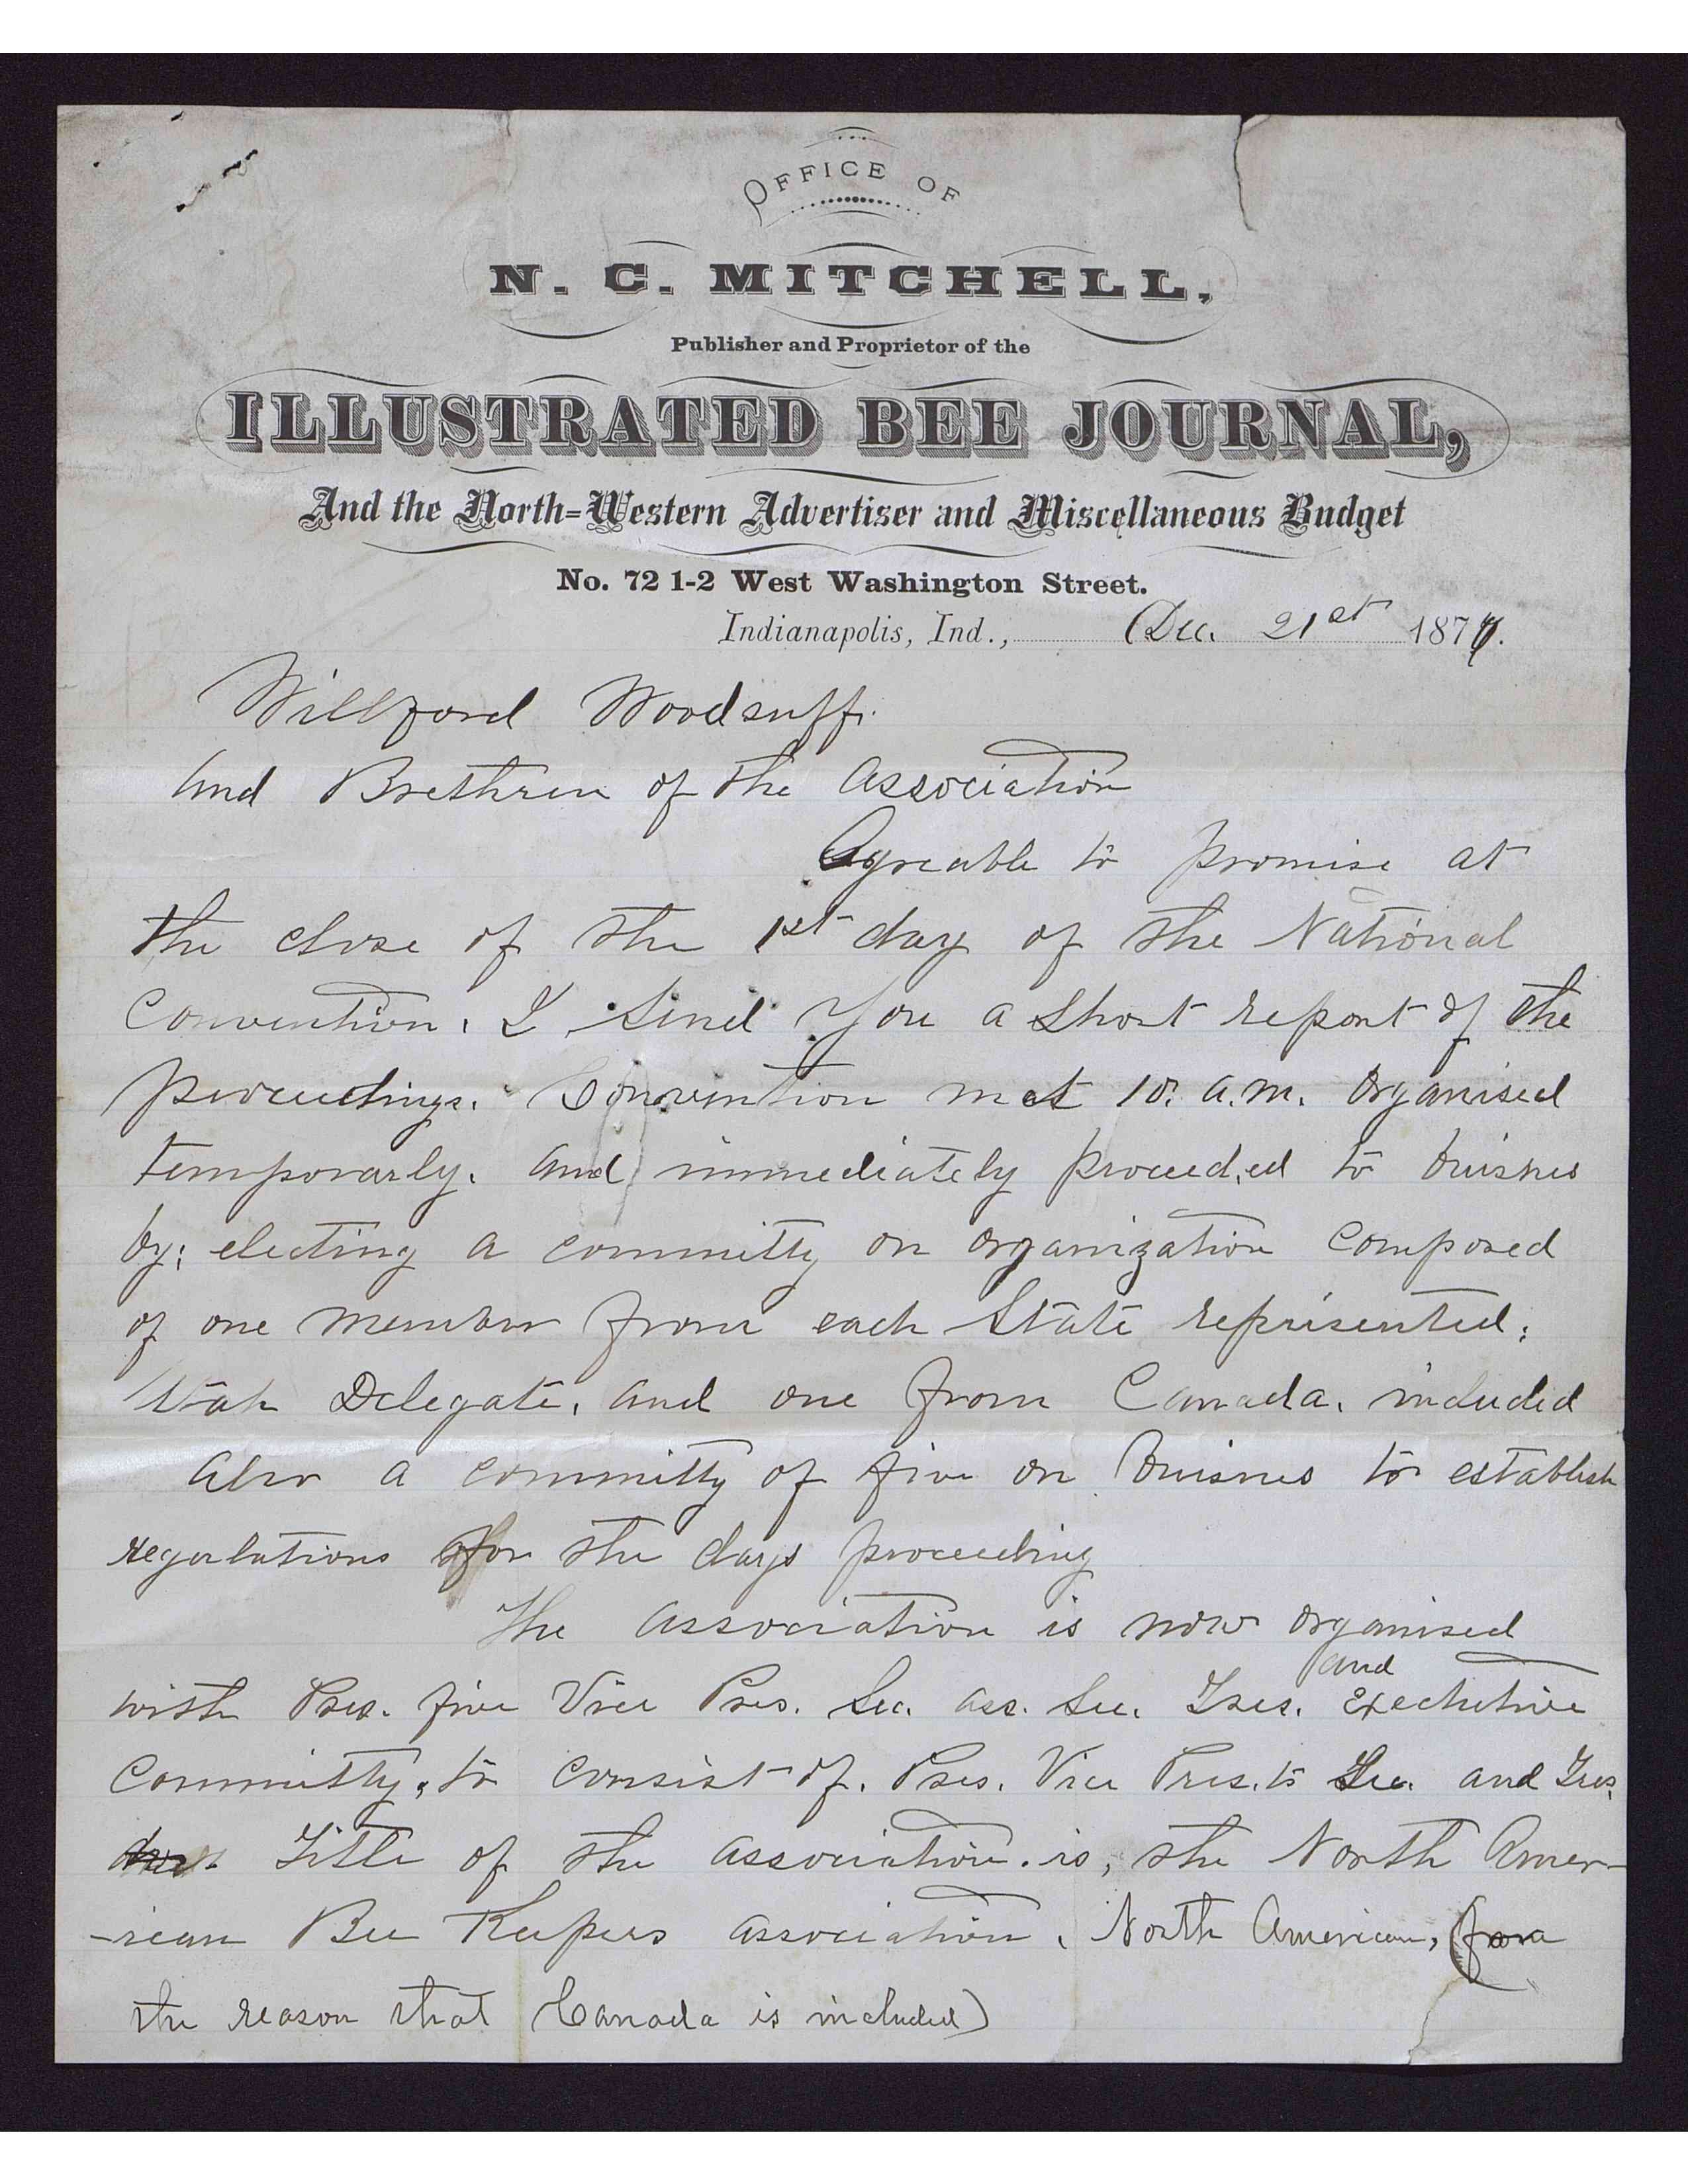 OFFICE OF
N. C. MITCHELL,
Publisher and Proprietor of the
ILLUSTRATED BEE JOURNAL,
And the North-Western Advertiser and Miscellaneous Budget
No. 72 1-2 West Washington Street.
Indianapolis, Ind., Dec. 21st 1870.
Willford Woodruff.
And Brethren of the Association
Agreable to promise at
the close of the 1st day of the National
Convention. I send you a short report of the
proceedings. Convention met 10. a.m. organised
temporarly. and immediately proceeded to buisnes
by; electing a committy on organization composed
of one member from each State represented;
Utah Delegate, and one from Canada, included
Also a committy of five on buisnes to establish
regulations for the days proceeding
The Association is now organised
with Pres. five Vice Pres. Sec. ass. Sec. Tres. and Exechutive
Committy, to consist of. Pres. Vice Pres. to Sec. and Tres.
Title of the association. is, the North Amer-
-ican Bee Keepers association. North American, (for
the reason that Canada is included)